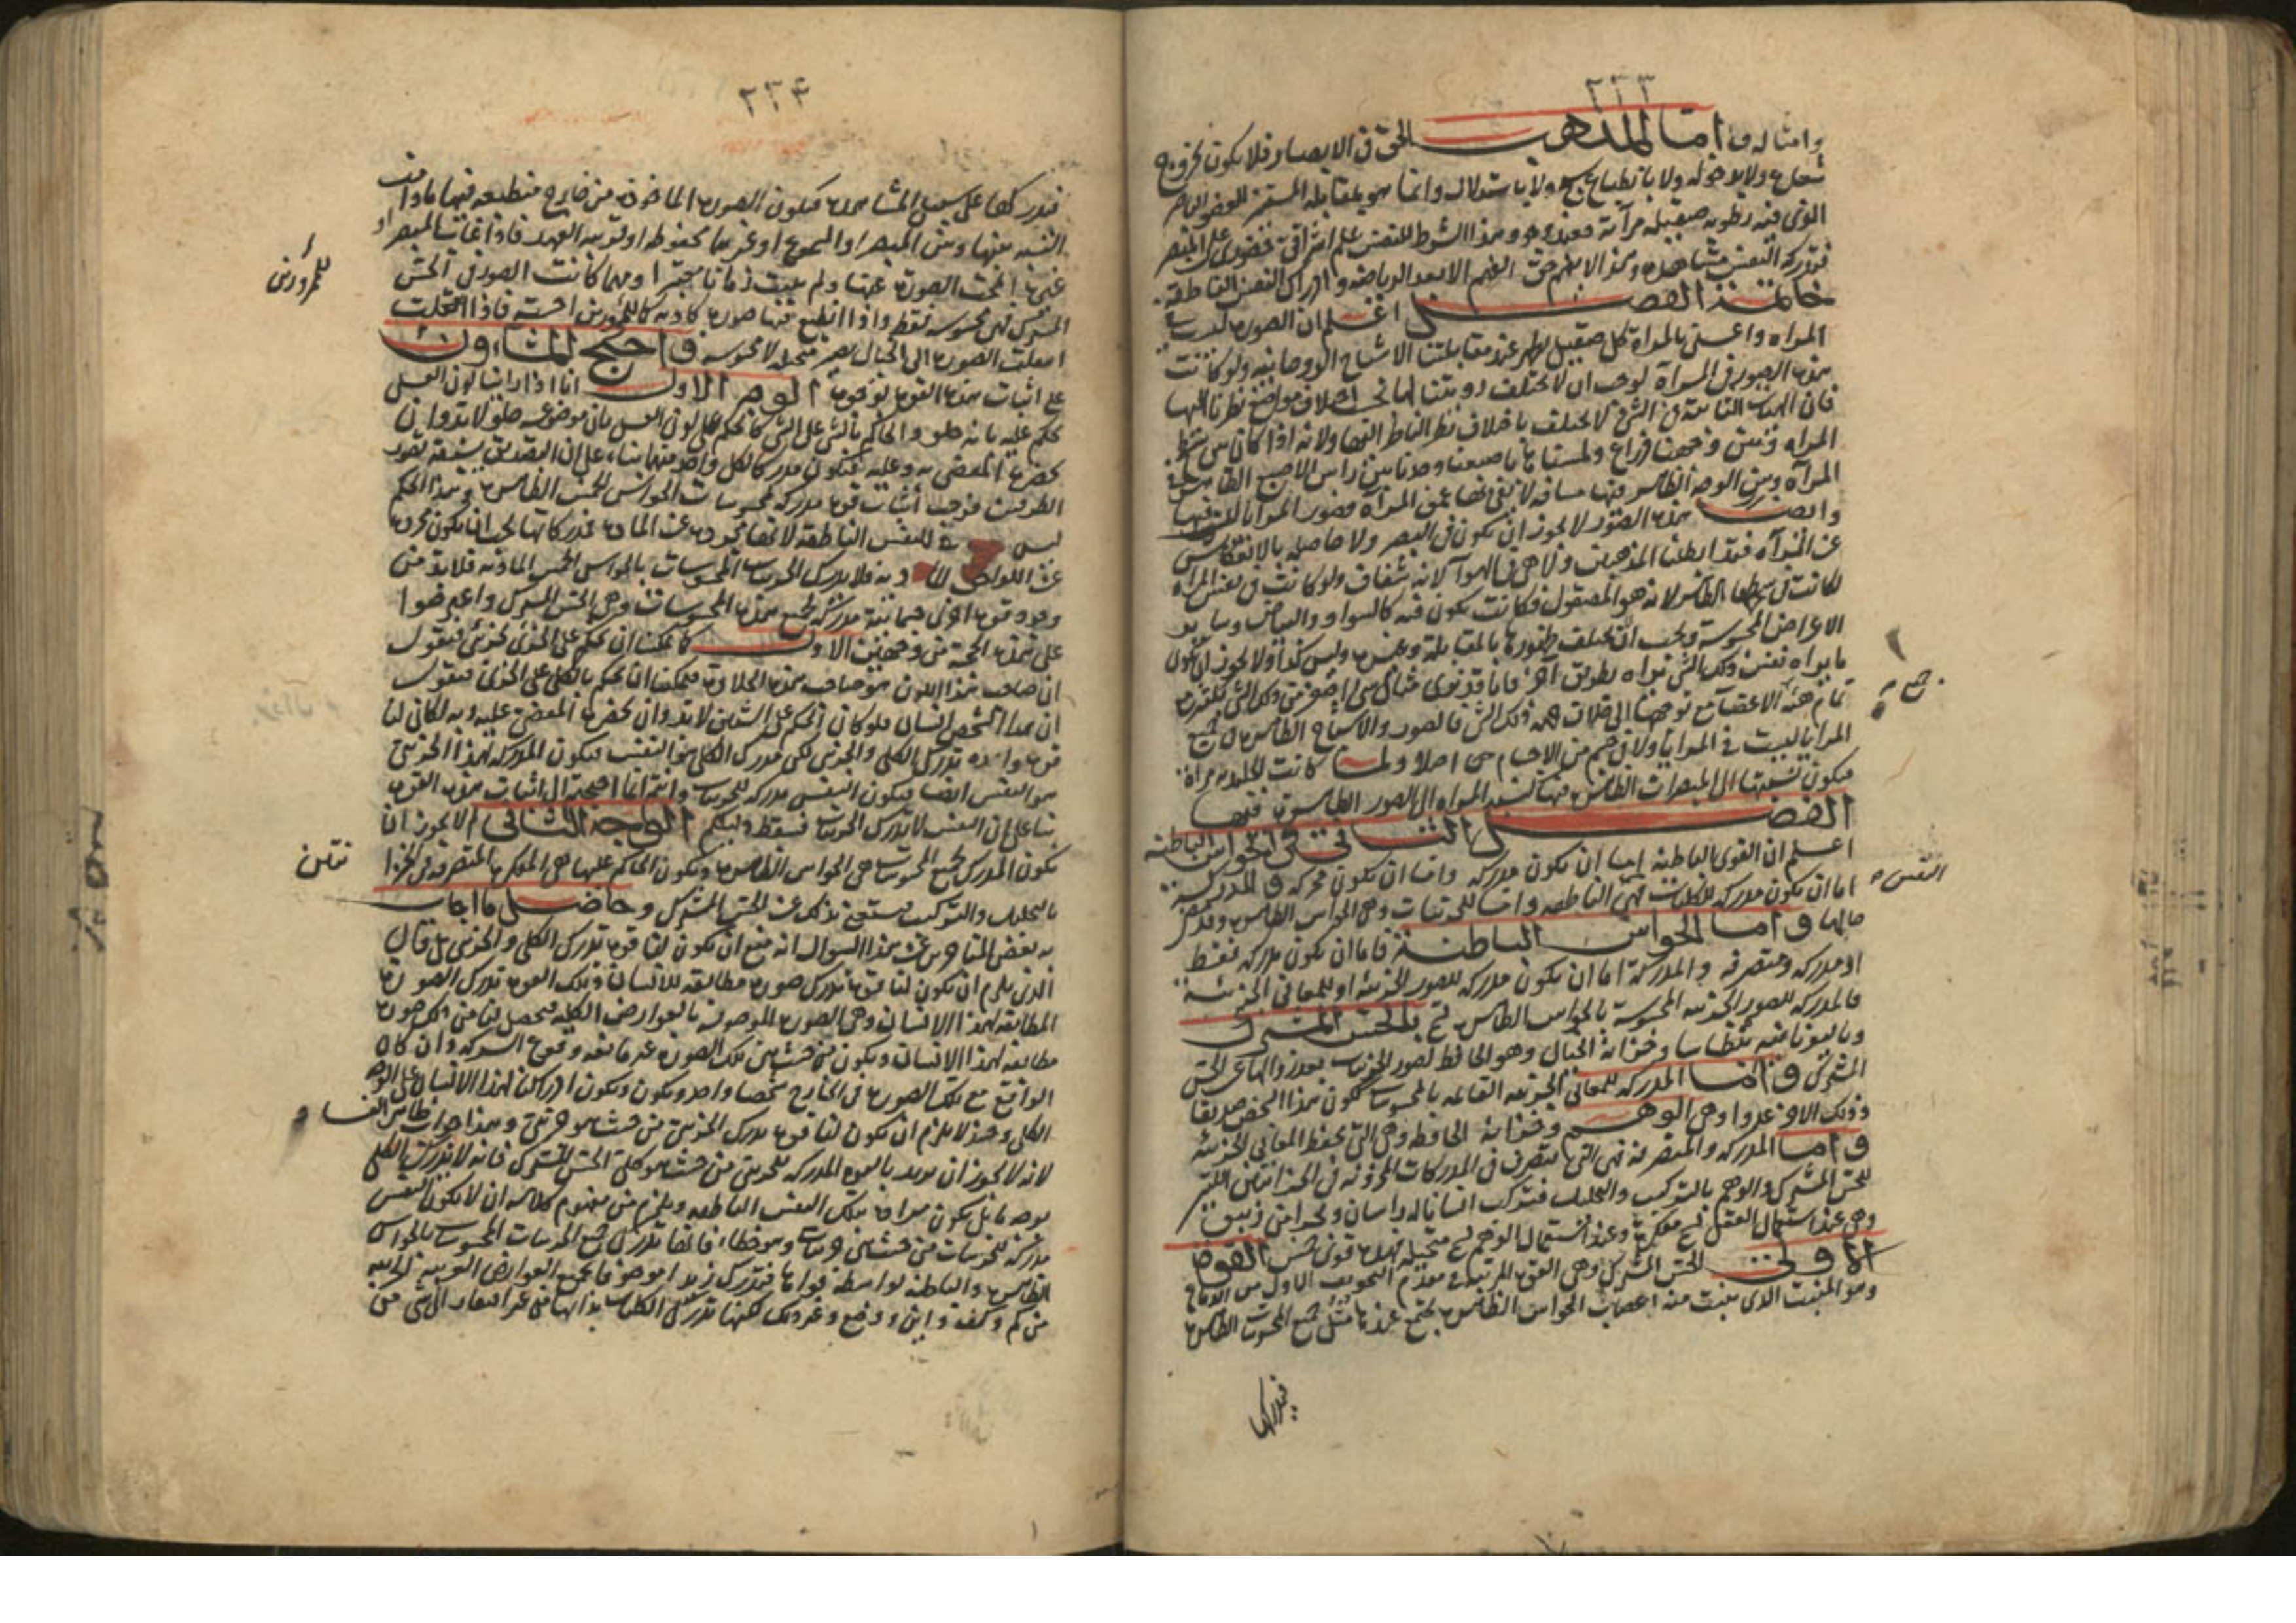 ٢٢٣
وامثاله و اما المذهب الحق فى الابصار فلا يكون بخروج
شعاع ولا بدخوله ولا بانطباع شبح ولا باستدلال وانما هو بمقابلة المستنير للعضو الباصر
الذى فيه رطوبة صقيلة مرآتية فعند وجود هذا الشرط للنفس علم اشراقى حضورى على المبصر
فتدركه النفس مشاهدة وهذا لا يفهم حق الفهم الا بعد الرياضة وادراك النفس الناطقة
خاتمة الفصل اعلم ان الصورة ليست فى
المرآة واعنى بالمرآة كل صقيل يظهر عند مقابلتنا الاشباح الروحانية ولو كانت
هذه الصور فى المرآة لوجب ان لا تختلف رويتنا لها بحسب اختلاف مواضع نظرنا اليها
فان الهيئة الثابتة فى الشئ لا تختلف باختلاف نظر الناظر اليها ولانه اذا كان بين سطح
المرآة وبين وجهنا ذراع ولمسناها باصبعنا وجدنا بين راس الاصبع الظاهر فى
المرآة وبين الوجه الظاهر فيها مسافة لا يفى بها عمق المرآة فصور المرايا ليست فيها
وايضا هذه الصور لا يجوز ان يكون فى البصر ولا حاصلة بالانعكاس
عن المرآة فقد ابطلنا المذهبين ولا هى فى الهوآ لانه شفاف ولو كانت فى نفس المرآة
لكانت فى سطحها الظاهر لانه هو المصقول فكانت يكون فيه كالسواد والبياض وساير
الاعراض المحسوسة ويجب ان يختلف ظهورها بالمقابلة وغيرها وليس كذا ولا يجوز ان يكون
ما يراه نفس ذلك الشئ تراه بطريق آخر فانا قد نرى مثال شئ اصغر من ذلك الشئ بكثير مع
تمام هيئة الاعضآء مع توجهها الى خلاف جهة ذلك الشئ فالصور والاشباح الظاهرة فى جميع
المرايا ليست فى المرايا ولا فى جسم من الاجسام اصلا ولما كانت الجليدية مرآة
فيكون نسبتها الى المبصرات الظاهرة فيها كنسبة المرآة الى الصور الظاهرة فيها
الفصل الثانى فى الحواس الباطنة
اعلم ان القوى الباطنة اما ان يكون مدركة واما ان تكون محركة و المدركة
اما ان يكون مدركة للكليات فهى الناطقة واما للجزئيات وهى الحواس الظاهرة وقد مر
حالها و اما الحواس الباطنة فاما ان يكون مدركة فقط
او مدركة ومتصرفة والمدركة اما ان يكون مدركة للصور الجزئية او للمعانى الجزئية
فالمدركة للصور الجزئية المحسوسة بالحواس الظاهرة تسمى بالحس المشترك
وباليونانية بنطاسيا وخزانة الخيال وهو الحافظ لصور الجزئيات بعد زوالها عن الحس
المشترك و اما المدركة للمعانى الجزئية القائمة بالمحسوسات ككون هذا الشخص صديقا
وذلك الاخر عدوا وهى الوهم وخزانة الحافظة وهى التى تحفظ المعانى الجزئية
و اما المدركة والمتصرفة فهى التى تتصرف فى المدركات المخزونة فى الخزانتين اللتين
للحس المشترك والوهم بالتركيب والتحليل فتركب انسانا له راسان وبحرا من زيبق
وهى عند استعمال العقل تسمى مفكرة وعند استعمال الوهم تسمى متخيلة فهذه قوى خمس القوة
الاولى الحس المشترك وهى القوة المرتبة فى مقدم التجويف الاول من الدماغ
وهو المنبت الذى ينبت منه اعصاب الحواس الظاهرة يجتمع عندها مثل جميع المحسوسات الظاهرة
فيدركها
النفس
٢٢٤
فيدركها على سبيل المشاهدة فيكون الصورة الماخوذة من خارج منطبعة فيها مادامت
النسبة بينها وبين المبصر او المسموع او غيرهما محفوظة او قريبة العهد فاذا غاب المبصر او
غيره انمحت الصورة عنها ولم يثبت زمانا معتبرا ومهما كانت الصورة فى الحس
المشترك فهى محسوسة فقط واذا انطبع فيها صورة كاذبة كما للممرورين احسته فاذا انتقلت
انتقلت الصورة الى الخيال يصير متخيلة لا محسوسة و احتج المشاؤون
على اثبات هذه القوة بوجوه الوجه الاول انا اذا راينا لون العسل
نحكم عليه بانه حلو والحاكم بالشئ على الشئ كما نحكم على لون العسل بان موضوعه حلو لا بد وان
يحضره المقضى به وعليه فيكون مدركا لكل واحد منهما بناء على ان التصديق يسبقه تصور
الطرفين فوجب اثبات قوة مدركة لمحسوسات الحواس الخمس الظاهرة وهذا الحكم
ليس للنفس الناطقة لانها مجردة عن المادة فمدركاتها يجب ان يكون مجردة
عن اللواحق المادية فلا يدرك الجزئيات المحسوسات بالحواس الخمس المادية فلا بد من
وجود قوة اخرى جسمانية مدركة لجميع هذه المحسوسات وهى الحس المشترك واعترضوا
على هذه الحجة من وجهين الاول كما يمكننا ان نحكم على الجزئى بجزئى فنقول
ان صاحب هذا اللون هو صاحب هذه الحلاوة فيمكننا ان نحكم بالكلى على الجزئى فنقول
ان هذا الشخص انسان فلو كان الحكم على الشيئين لا بد وان يحضره المقضى عليه وبه لكان لنا
قوة واحدة تدرك الكلى والجزئى لكن مدرك الكلى هو النفس فيكون المدرك لهذا الجزئى
هو النفس ايضا فيكون النفس مدركة للجزئيات وانتم انما احتجتم الى اثبات هذه القوة
بناء على ان النفس لا يدرك الجزئيات فسقط دليلكم الوجه الثانى لم لا يجوز ان
يكون المدرك لجميع المحسوسات هى الحواس الظاهرة ويكون الحاكم عليها هى المفكرة المتصرفة فى الخزانتين
بالتحليل والتركيب فيستغنى بذلك عن الحس المشترك و حاصل ما اجاب
به بعض المتاخرين عن هذا السوال انه منع ان يكون لنا قوة تدرك الكلى والجزئى بل قال
الذى يلزم ان يكون لنا قوة تدرك صورة مطابقة للانسان وتلك القوة تدرك الصورة
المطابقة لهذا الانسان وهى الصورة الموصوفة بالعوارض الكلية فيحصل لنا من ذلك صورة
مطابقة لهذا الانسان ويكون من حيث هى تلك الصورة غير مانعة وقوع الشركة وان كان
الواقع مع تلك الصورة فى الخارج شخصا واحدا ويكون ادراكنا لهذا الانسان على الوجه
الكلى وحينئذ لا يلزم ان يكون لنا قوة يدرك الجزئى من حيث هو جزئى وهذا جواب ظاهر الفساد
لانه لا يجوز ان يريد بالقوة المدركة للجزئى من حيث هو كلى الحس المشترك فانه لا يدرك الكلى
بوجه ما بل يكون مراده بتلك النفس الناطقة ويلزم من مفهوم كلامه ان لا يكون النفس
مدركة للجزئيات من حيث هى جزئيات وهو خطاء فانها تدرك جميع الجزئيات المحسوسات بالحواس
الظاهرة والباطنة بواسطة قواها فيدرك زيدا موصوفا بجميع العوارض الغريبة الذاتية
من كم وكيف واين ووضع وغير ذلك لكنها تدرك الكليات بذاتها من غير افتقار الى شئ من
للممرورين
نتين